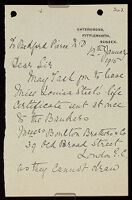 GATESHOUSE,
FITTLEWORTH,
SUSSEX.
To Bedford Pierce M.D.
12th January
1905
Dear Sir
May I ask you to have
Miss Louisa Steel's life
Certificate sent at once
to the Bankers
Messrs Boulton Brothers & Co
39 Old Broad Street
London E.C
as they cannot draw